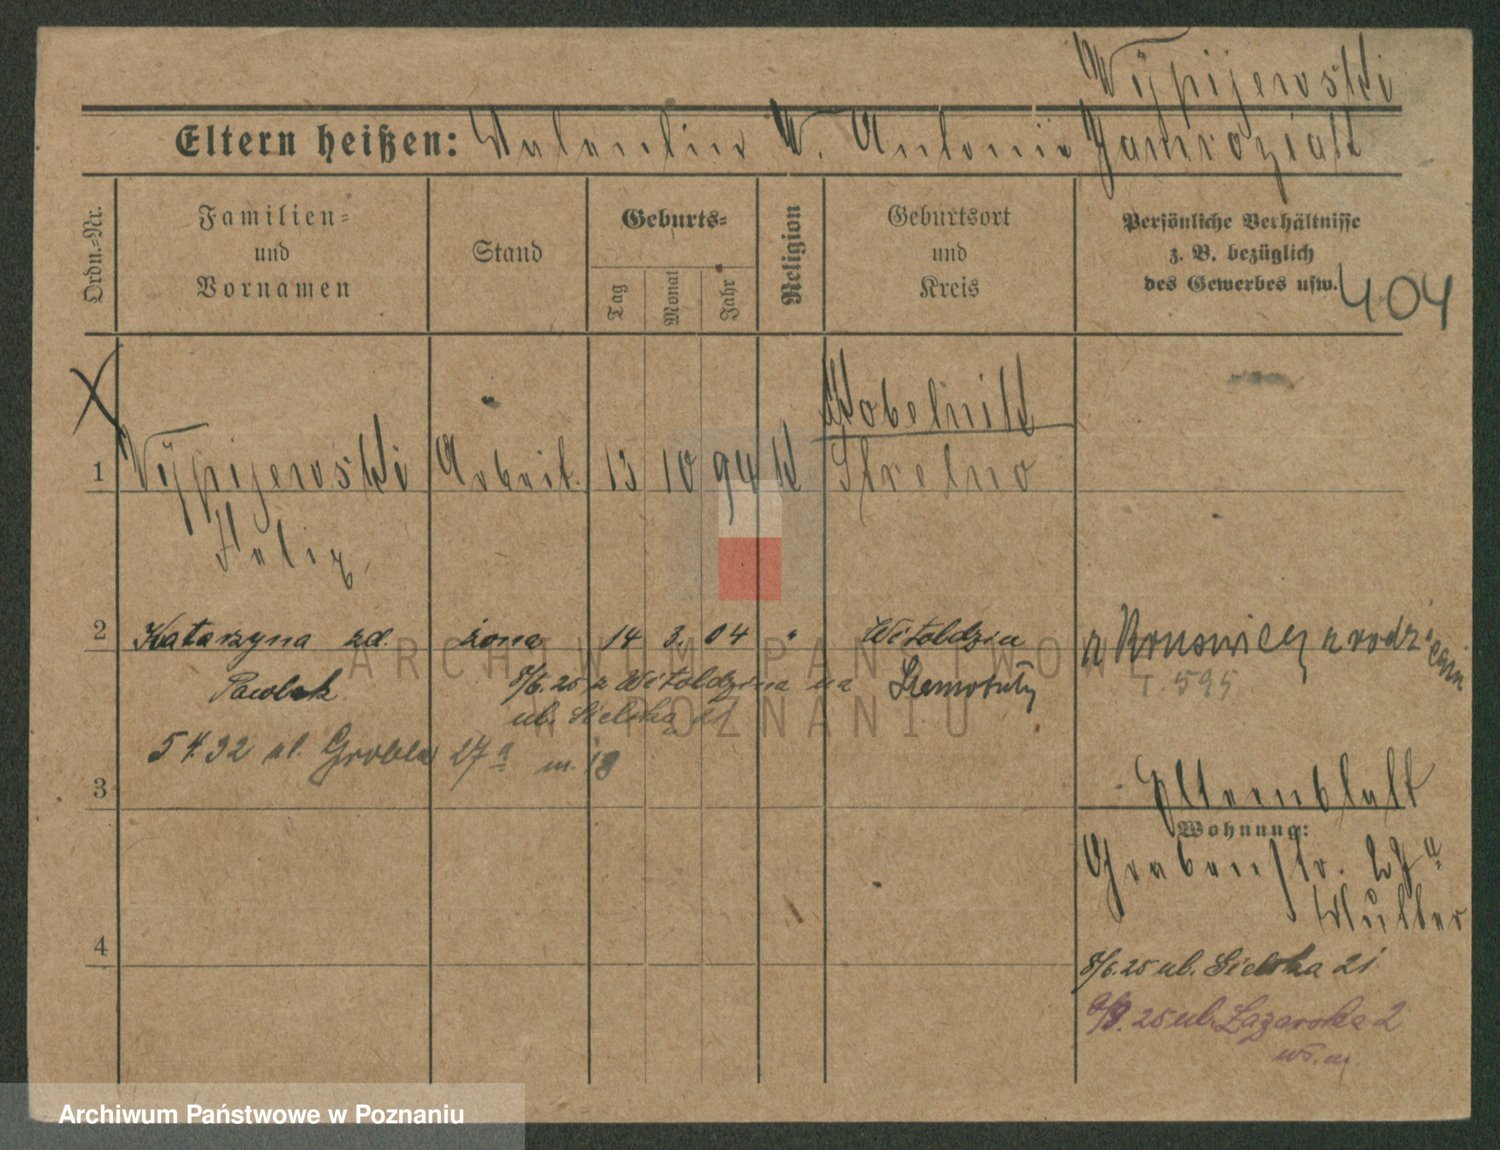 Wypijewski
Eltern heißen: Valentin W. Antonie Jamroziak
Ordn.-Nr.
Familien-
und
Vornamen
Stand
Geburts-
Tag
Monat
Jahr
Religion
Geburtsort
und
Kreis
Persönliche Verhältnisse
z. B. bezüglich
des Gewerbes usw.
404
Kobelnik
1 Wypijewski Arbeit. 13 10 94 k Strelno
Feliz
2 Katarzyna zd. żona 14 3. 04 " Witoldzin
Pawlak
8/6.25 z Witoldzina na
ul. Sielska 21
Szamotuły
T. 595
5 4. 32 ul. Grobla 27a m. 18
3
Elternblatt
Wohnung:
Grabenstr. 27a
Mutter
4
8/6.25 ul. Sielska 21
9/9. 25 ul. Łazarska 2
ARCHIWUM PAŃSTWOWE
W POZNANIU
Archiwum Państwowe w Poznaniu